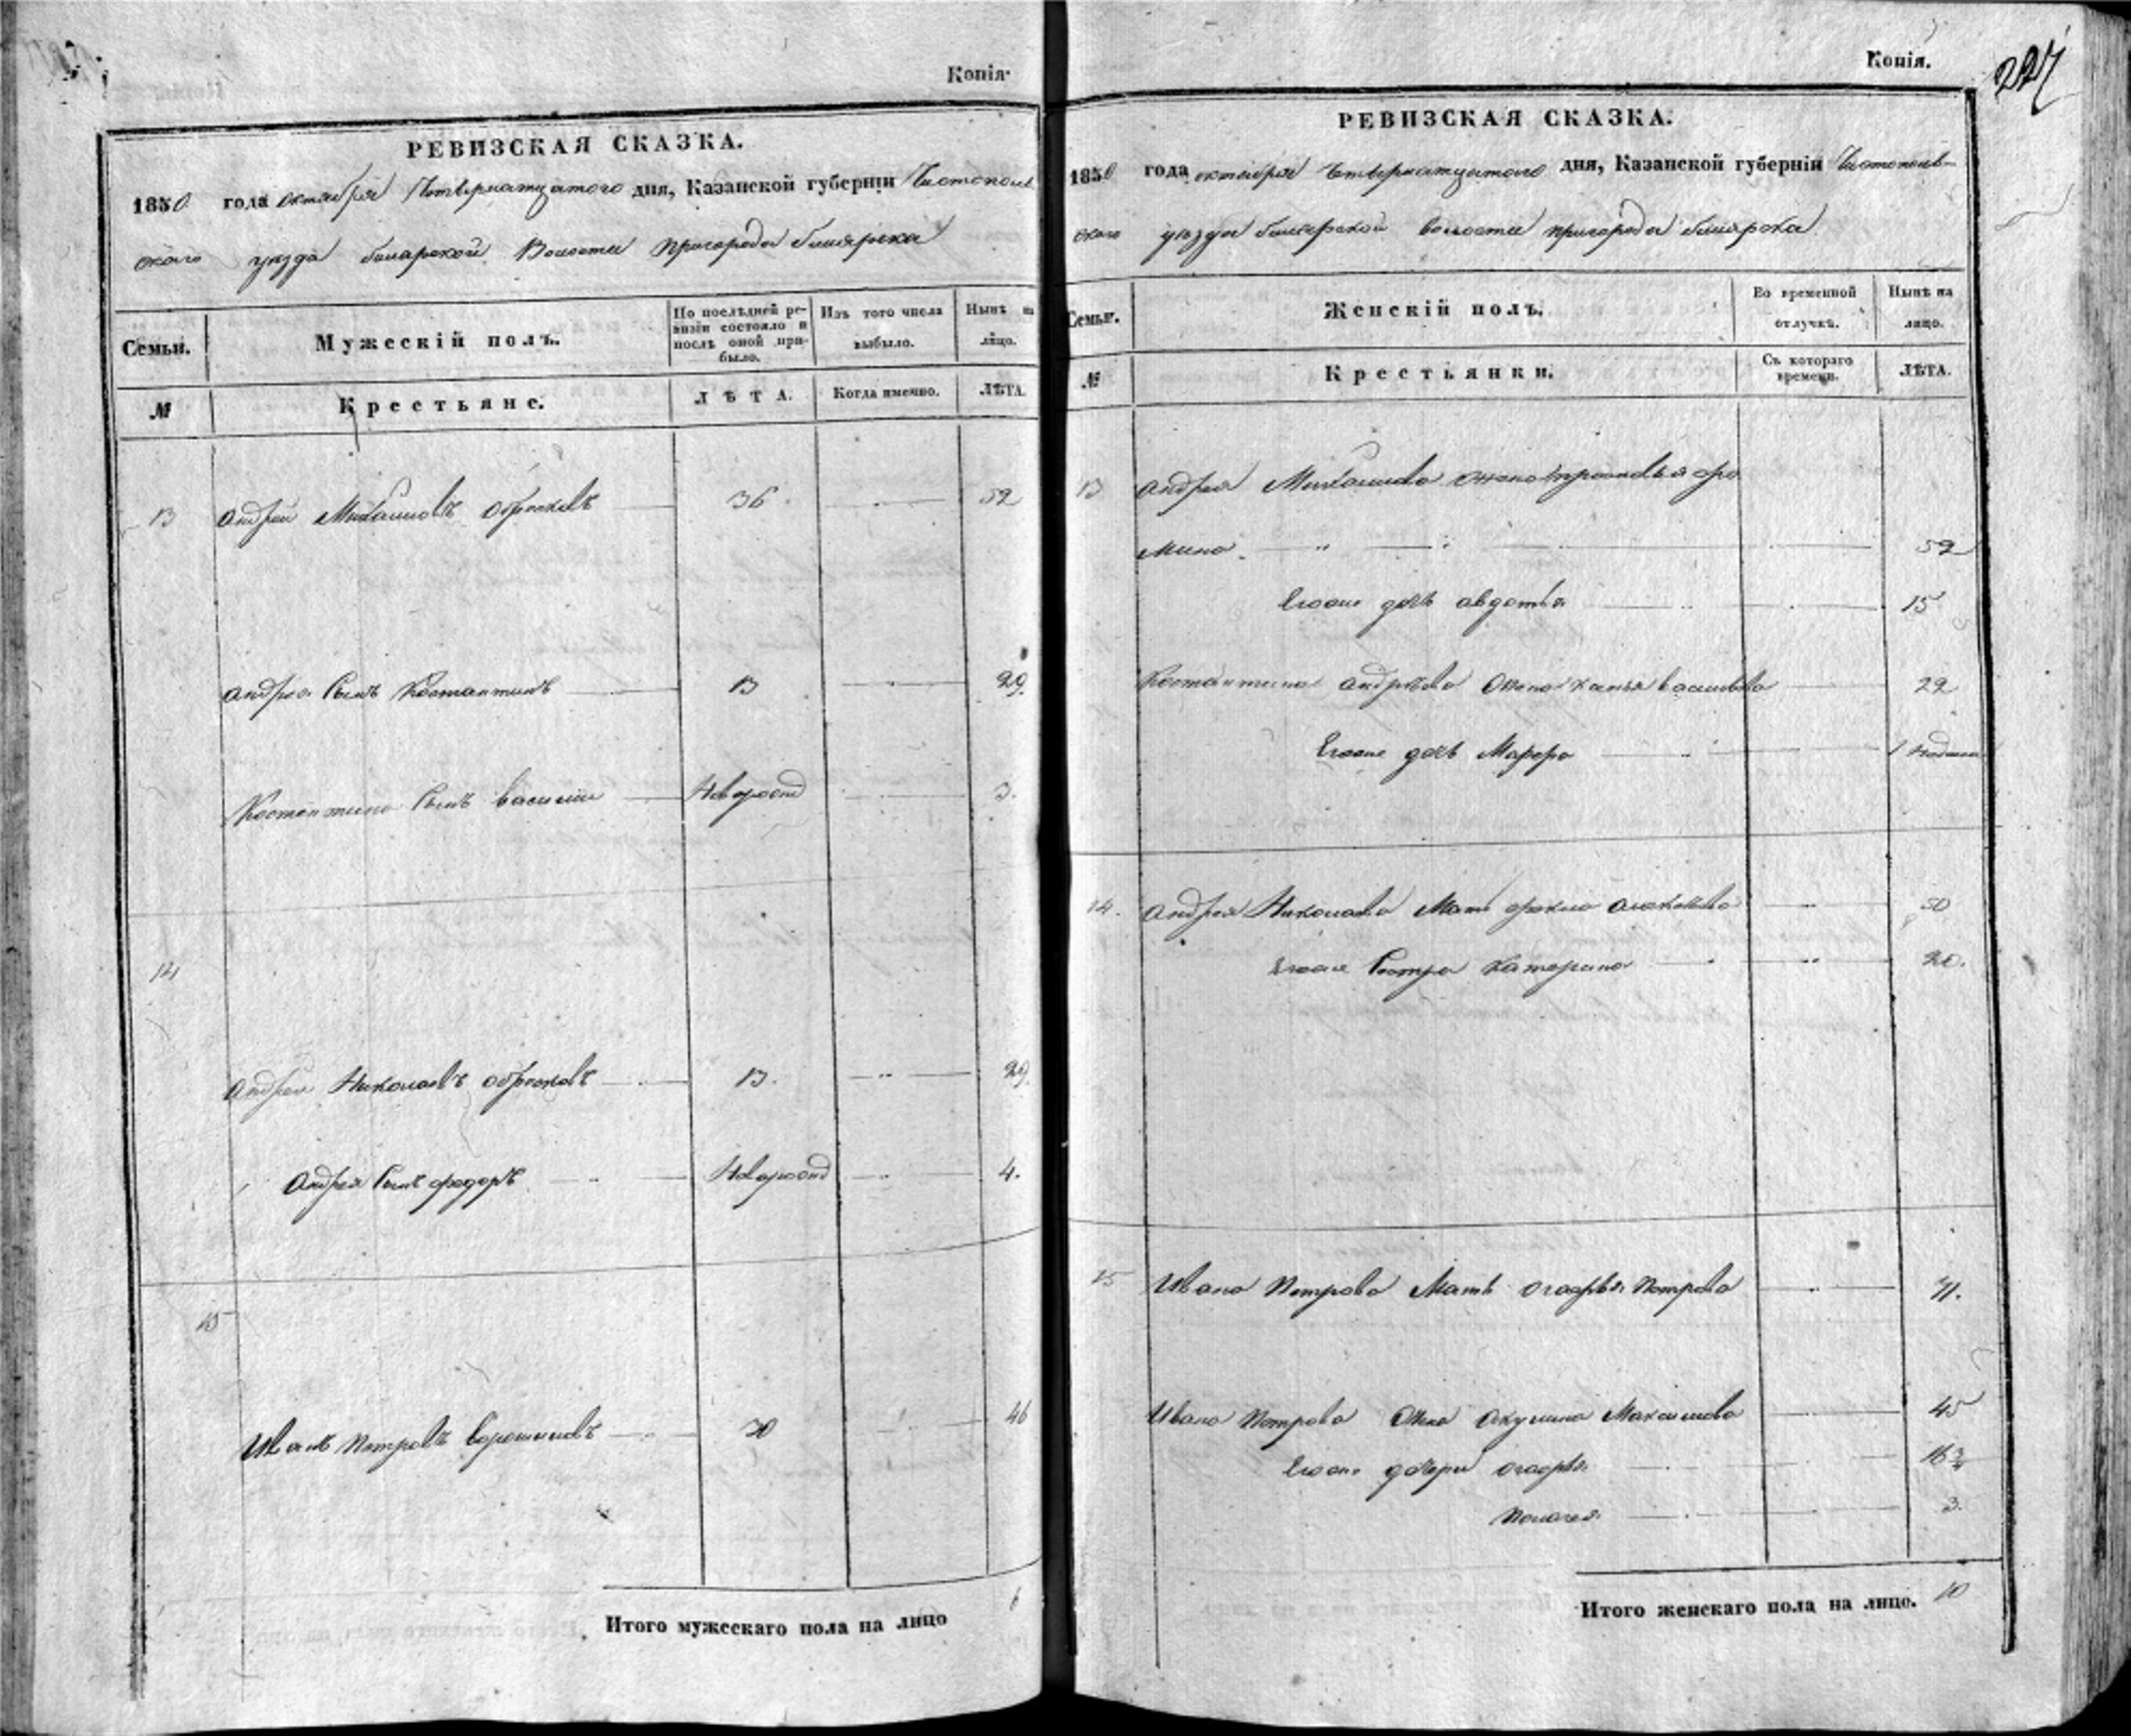 Копія.
РЕВИЗСКАЯ СКАЗКА.
1850 года октября Четвернатцатого дня, Казанской губерніи Чистополь
скаго уезда билярской Волости Пригорода билярска
Семьи. Мужескій полъ. По послѣдней ревизіи состояло и послѣ оной прибыло. Изъ того числа выбыло. Нынѣ на лицо.
№ Крестьяне. ЛѢТА. Когда именно. ЛѢТА.
13 Андрей Михайловъ 36 52
Андрея Сынъ Костантинъ 13 29
Костантина Сынъ василии Новорожд 3.
14
Андреи Николаевъ 13. 29.
Андрея Сынъ федоръ Новорожд 4.
15
Иванъ Петровъ 30 46
Итого мужескаго пола на лицо 6
Копія.
227
РЕВИЗСКАЯ СКАЗКА.
1850 года октября Четвернатцатого дня, Казанской губерніи Чистополь-
скаго уезда билярской волости пригорода билярска
Семьи. Женскій полъ. Во временной отлучкѣ. Нынѣ на лицо.
№ Крестьянки. Съ котораго времени. ЛѢТА.
13 Андрея Михайлова жена
52
Егоже дочь авдотья 15
Костантина андреева жена 29
Егоже дочь Марфа 1
14. Андрея Николаева Мать фекла 50
Егоже Сестра Катерина 20.
15 Ивана Петрова Мать агафья Петрова 71.
Ивана Петрова Жена Акулина Максимова 45
Егоже дочери агафья 16
Пелагея 3.
Итого женскаго пола на лицо. 10